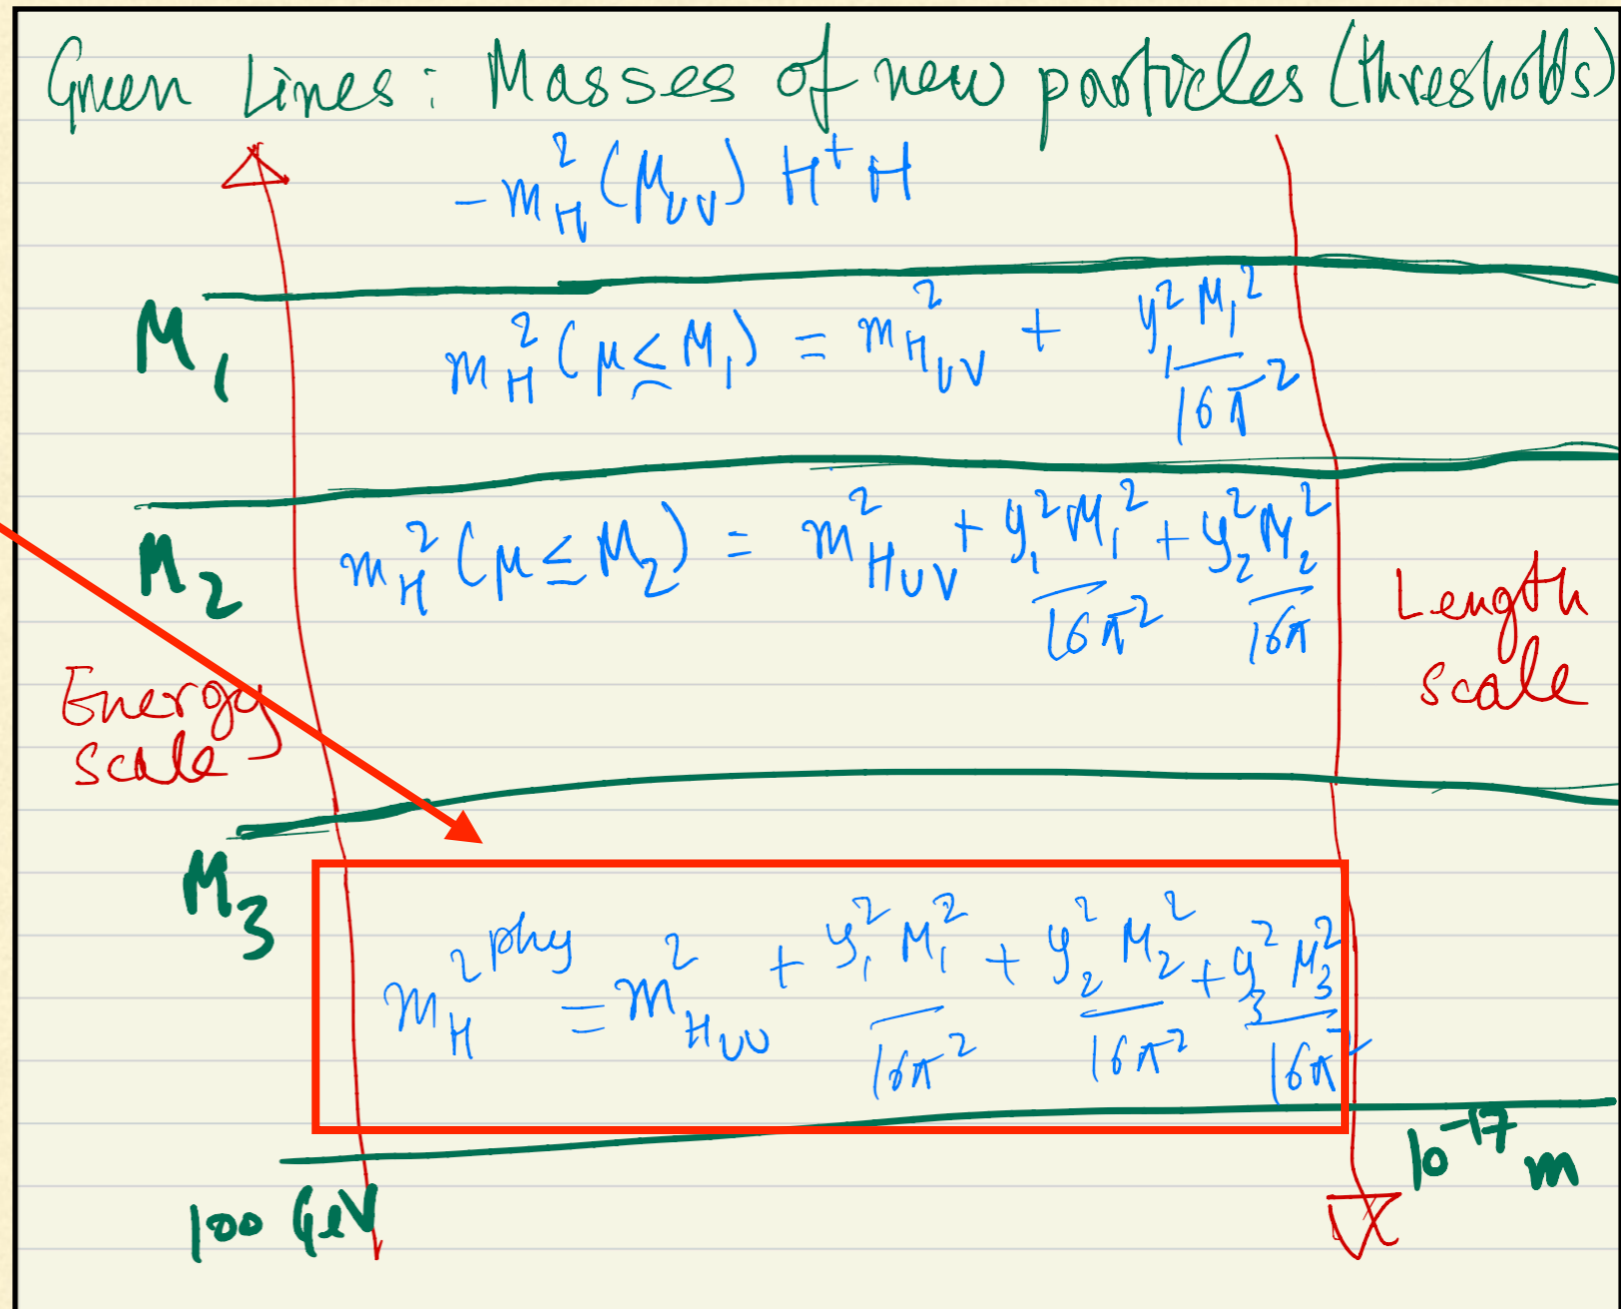 Green Lines: Masses of new particles (thresholds)
-m_H^2 (μ_UV) H^+ H
M_1
m_H^2 (μ ≤ M_1) = m_{H_UV}^2 + y_1^2 M_1^2 / 16π^2
M_2
m_H^2 (μ ≤ M_2) = m_{H_UV}^2 + y_1^2 M_1^2 / 16π^2 + y_2^2 M_2^2 / 16π
Length
scale
Energy
scale
M_3
m_H^{2 phy} = m_{H_UV}^2 + y_1^2 M_1^2 / 16π^2 + y_2^2 M_2^2 / 16π^2 + y_3^2 M_3^2 / 16π^2
10^{-17} m
100 GeV